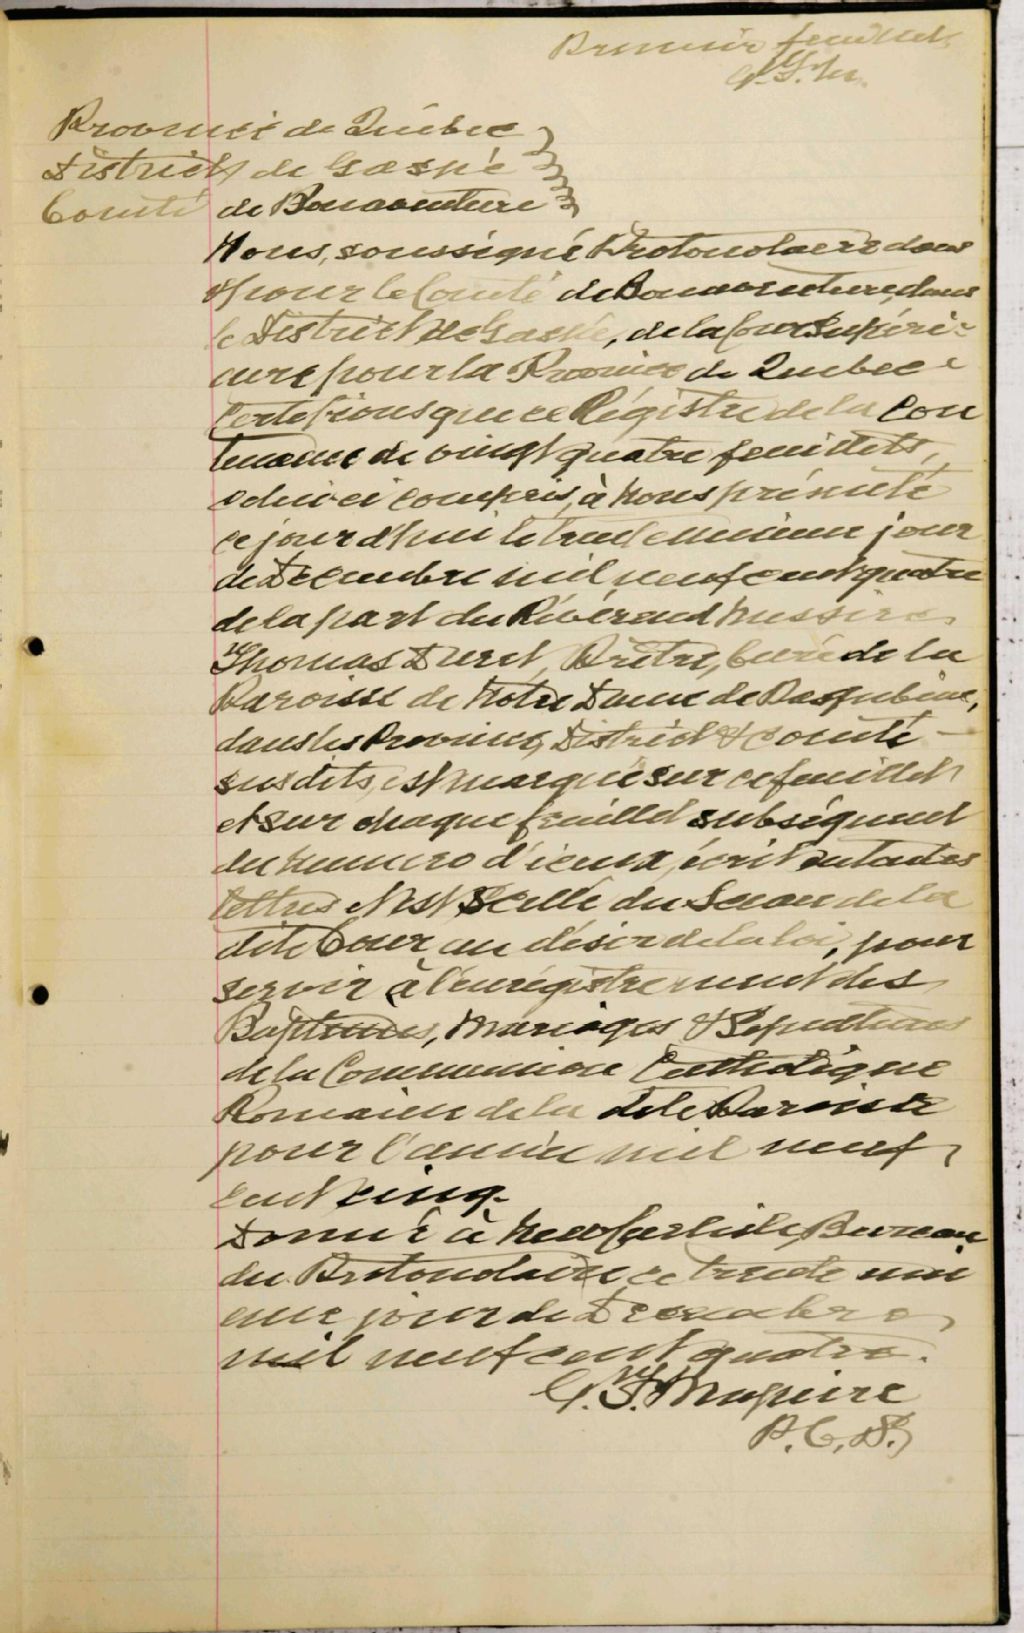 Premier feuillet
Province de Québec
District de Gaspé
Comté de Bonaventure
Nous, soussigné Protonotaire dans
& pour le Comté de Bonaventure, dans
le District de Gaspé, de la Cour Supéri-
eure pour la Province de Quebec
Certifions que ce Régistre de la con
tenance de vingt quatre feuillets,
celui ci compris, à nous présenté
ce jour d'hui le trente unieme jour
de Décembre mil neuf cent quatre
de la part du Révérend Messire
Thomas Prêtre, Curé de la
Paroisse de Notre Dame de Paspébiac,
dans les Province, District & Comté
susdits, est marqué sur ce feuillet
et sur chaque feuillet subséquent
du numero d'iceux, écrit en toutes
lettres et est scellé du Sceau de la
dite Cour, au désir de la loi, pour
servir à l'enrégistrement des
Baptemes, Mariages & Sepultures
de la Communion Catholique
Romaine de la dite Paroisse
pour l'année mil neuf
cent cinq.
Donné à New Carlisle, Bureau
du Protonotaire ce trente uni
eme jour de Decembre
mil neuf cent quatre.
Maguire
P.C.S.